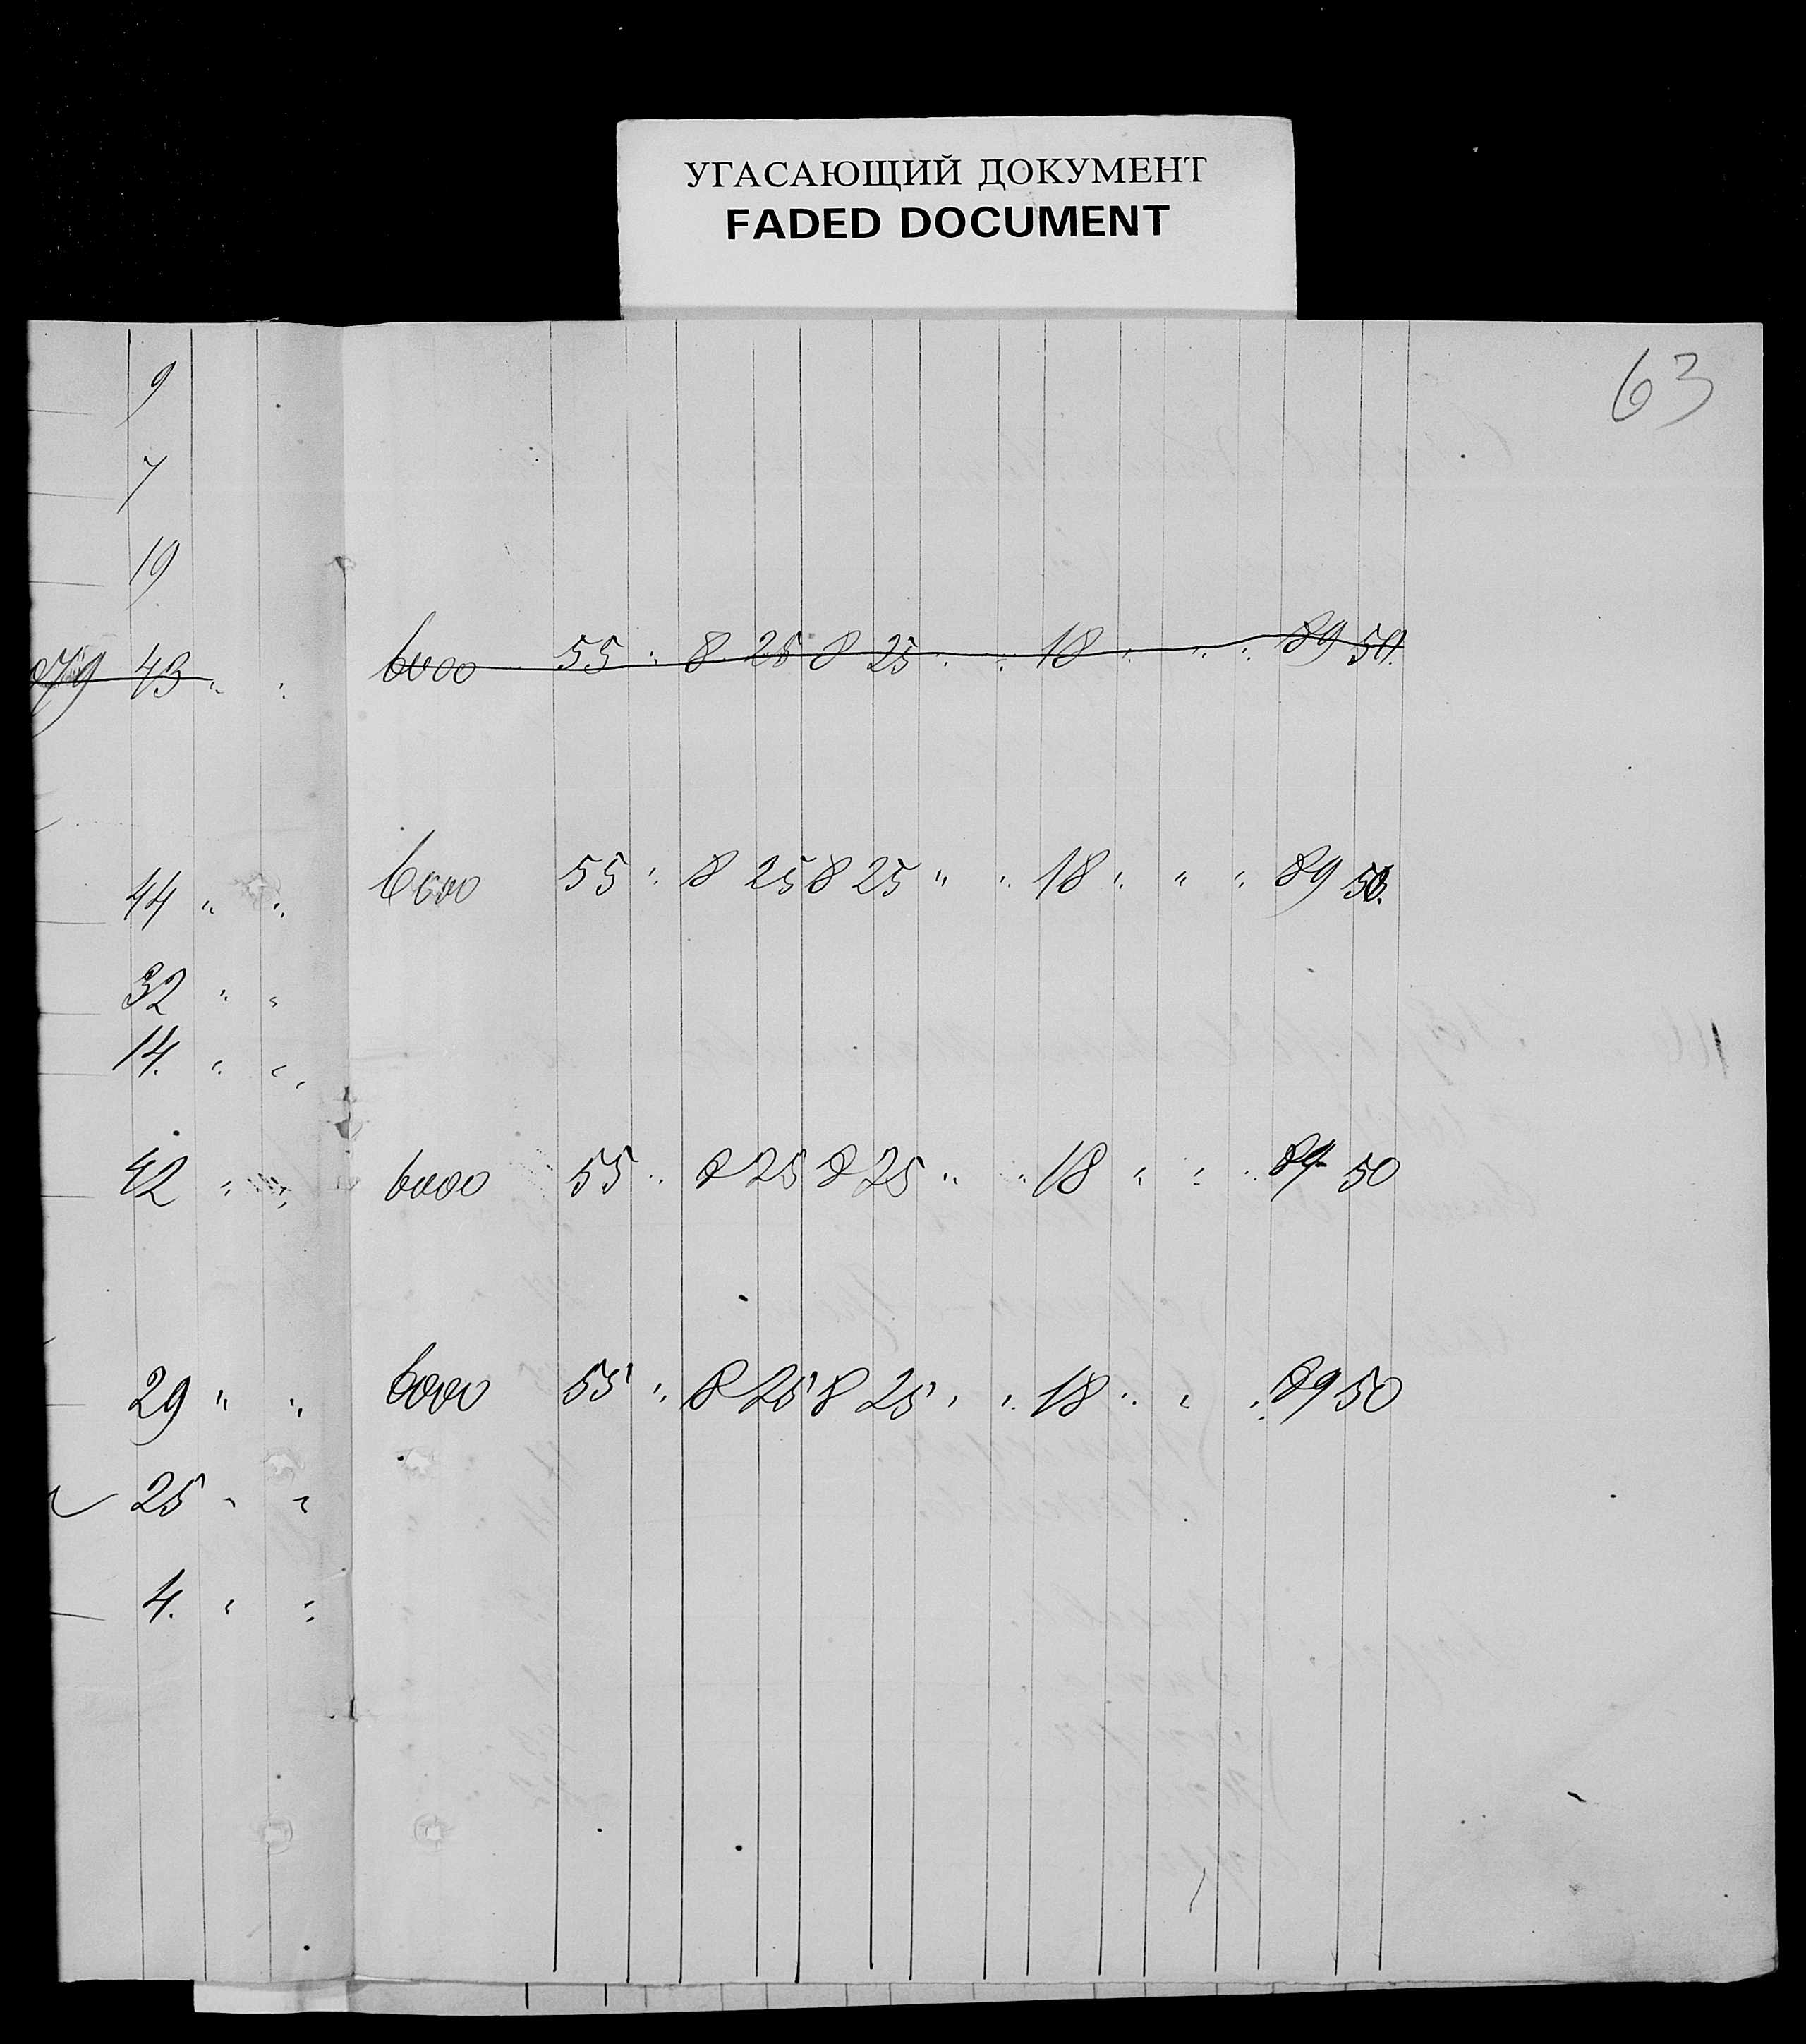 УГАСАЮЩИЙ ДОКУМЕНТ
FADED DOCUMENT
63
9
7
19
43 " " 6000 55 " 8 25 8 25 " " 18 " " " 89 50.
44 " " 6000 55 " 8 25 8 25 " " 18 " " " 89 50.
32 " "
14. " "
42 " " 6000 55 " 8 25 8 25 " " 18 " " " 89 50
29 " " 6000 55 " 8 25 8 25 " " 18 " " " 89 50
25 " "
4. " "